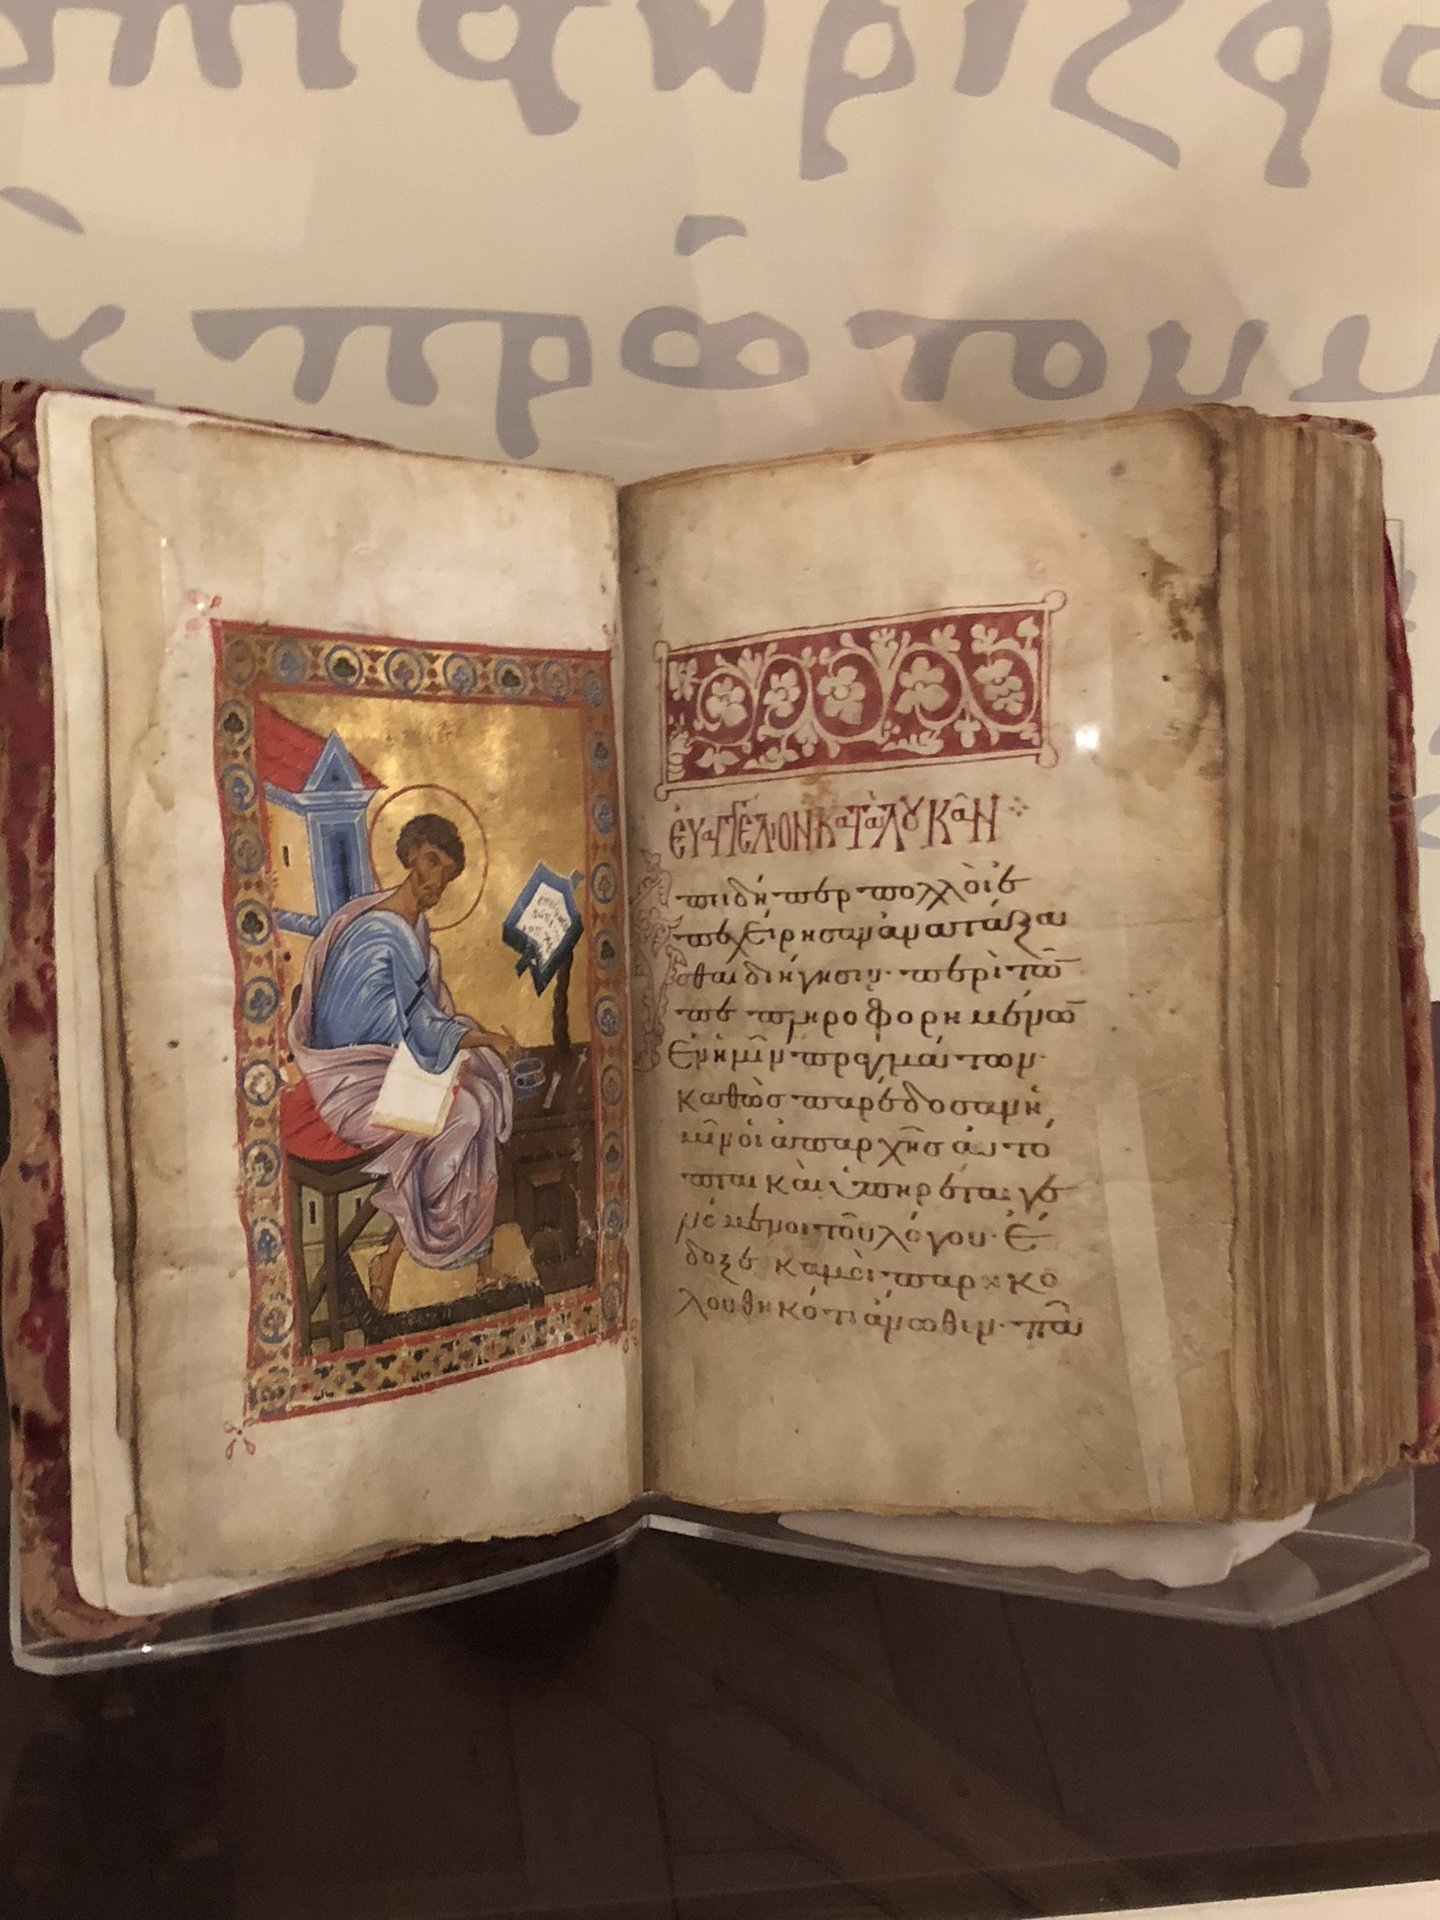 πρωτο
ἐυαγγέλιον κατὰ λουκᾶν
πειδή περ πολλοὶ ἐ
πεχείρησαν ἀνατάξα
σθαι διήγησιν· περὶ τῶ̅
πεπληροφορημένω̅
ἐν ἡμῖν πραγμάτων·
καθὼσ παρέδοσαν ἡ
μῖν ὁι ἀπαρχῆσ ἀυτό
πται καὶ ὑπηρέται γε
νόμενοι τοῦ λόγου· ἔ
δοξε καμοὶ παρηκο
λουθηκότι ἄνωθεν· πᾶσι